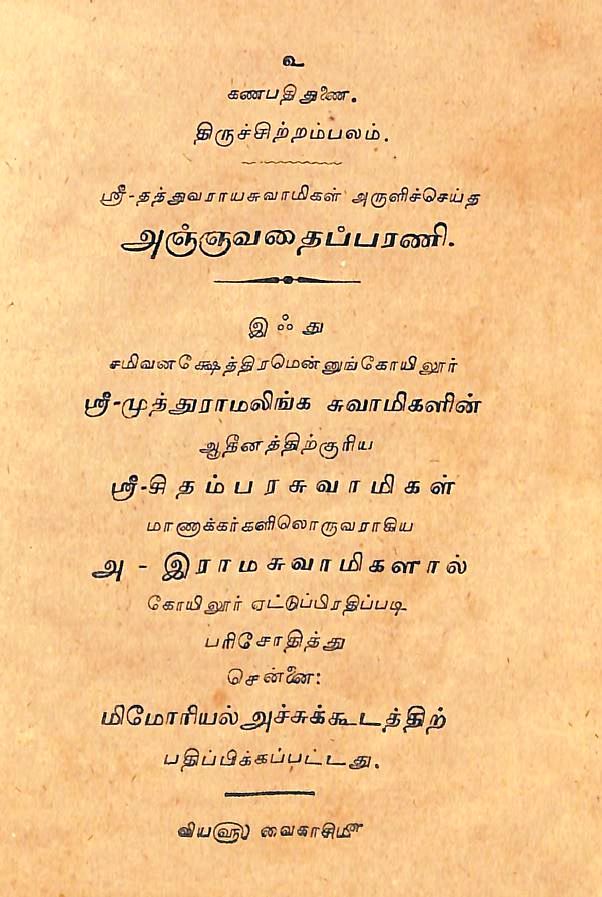 உ
கணபதிதுணை.
திருச்சிற்றம்பலம்.
ஸ்ரீ-தத்துவராயசுவாமிகள் அருளிச்செய்த
அஞ்ஞவதைப்பரணி.
இஃது
சமிவனக்ஷேத்திரமென்னுங்கோயிலூர்
ஸ்ரீ-முத்துராமலிங்க சுவாமிகளின்
ஆதீனத்திற்குரிய
ஸ்ரீ-சிதம்பரசுவாமிகள்
மாணாக்கர்களிலொருவராகிய
அ - இராமசுவாமிகளால்
கோயிலூர் ஏட்டுப்பிரதிப்படி
பரிசோதித்து
சென்னை:
மிமோரியல்அச்சுக்கூடத்திற்
பதிப்பிக்கப்பட்டது.
விய௵ வைகாசி௴